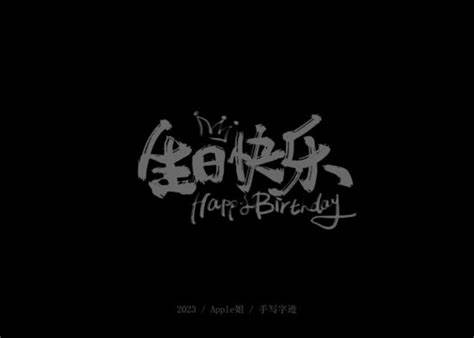 生日快乐
Happy Birthday
2023 / Apple姐 / 手写字迹